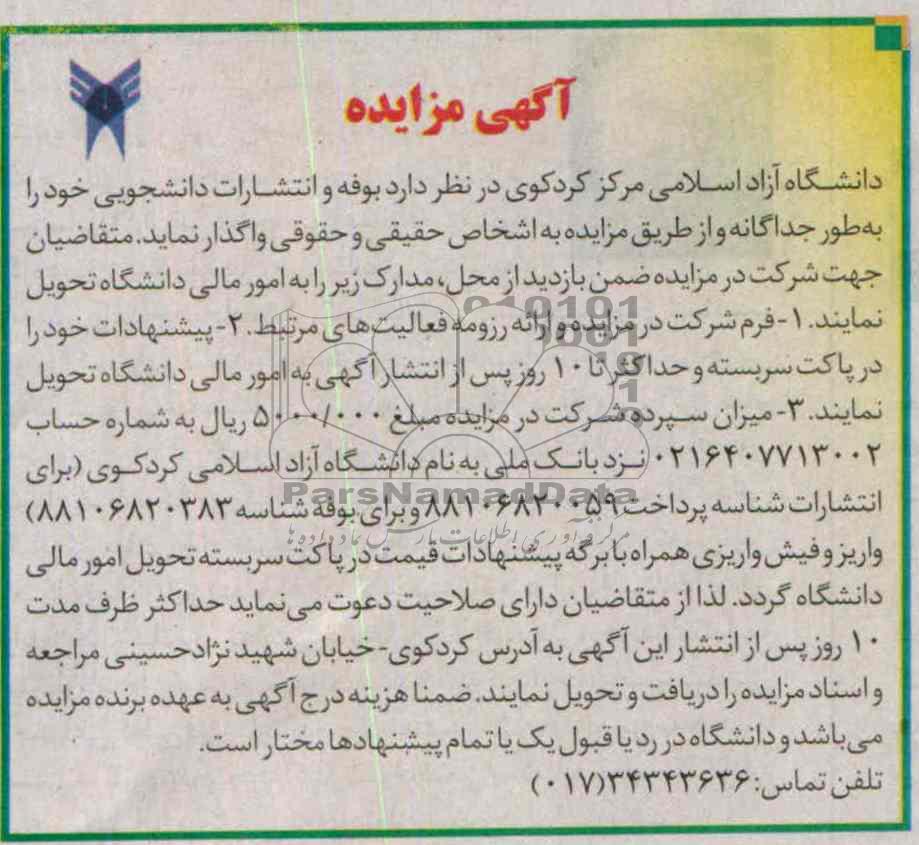 آگهی مزایده
دانشگاه آزاد اسلامی مرکز کردکوی در نظر دارد بوفه و انتشارات دانشجویی خود را
به‌طور جداگانه و از طریق مزایده به اشخاص حقیقی و حقوقی واگذار نماید. متقاضیان
جهت شرکت در مزایده ضمن بازدید از محل، مدارک زیر را به امور مالی دانشگاه تحویل
نمایند. ۱- فرم شرکت در مزایده و ارائه رزومه فعالیت‌های مرتبط. ۲- پیشنهادات خود را
در پاکت سربسته و حداکثر تا ۱۰ روز پس از انتشار آگهی به امور مالی دانشگاه تحویل
نمایند. ۳- میزان سپرده شرکت در مزایده مبلغ ۵۰۰۰/۰۰۰ ریال به شماره حساب
۰۲۱۶۴۰۷۷۱۳۰۰۲ نزد بانک ملی به نام دانشگاه آزاد اسلامی کردکوی (برای
انتشارات شناسه پرداخت ۸۸۱۰۶۸۲۰۰۵۹ و برای بوفه شناسه ۸۸۱۰۶۸۲۰۳۸۳)
واریز و فیش واریزی همراه با برگه پیشنهادات قیمت در پاکت سربسته تحویل امور مالی
دانشگاه گردد. لذا از متقاضیان دارای صلاحیت دعوت می‌نماید حداکثر ظرف مدت
۱۰ روز پس از انتشار این آگهی به آدرس کردکوی- خیابان شهید نژادحسینی مراجعه
و اسناد مزایده را دریافت و تحویل نمایند. ضمنا هزینه درج آگهی به عهده برنده مزایده
می‌باشد و دانشگاه در رد یا قبول یک یا تمام پیشنهادها مختار است.
تلفن تماس: ۳۴۳۴۳۶۳۶(۰۱۷)
ParsNamadData
مرکز فرآوری اطلاعات پارس نماد داده ها